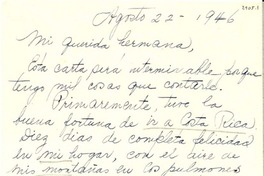 Agosto 22 - 1946
Mi querida hermana,
Esta carta será interminable, porque
tengo mil cosas que contarle.
Primeramente, tuve la
buena fortuna de ir a Costa Rica.
Diez días de completa felicidad
en mi hogar, con el aire de
mis montañas en los pulmones